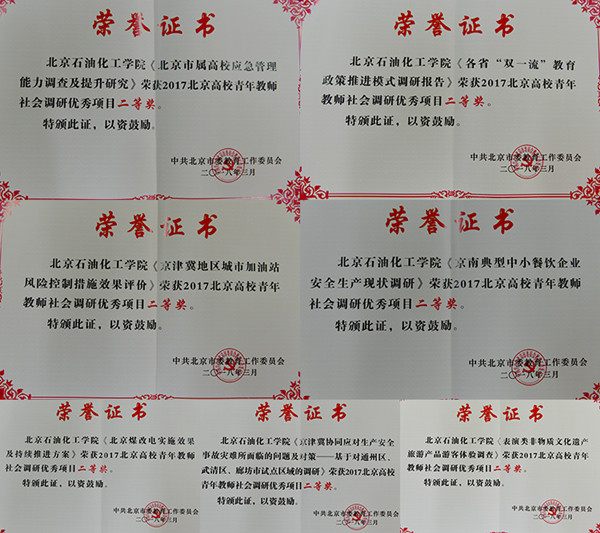 荣誉证书
北京石油化工学院《北京市属高校应急管理
能力调查及提升研究》荣获2017北京高校青年教师
社会调研优秀项目二等奖。
特颁此证，以资鼓励。
中共北京市委教育工作委员会
二〇一八年三月
荣誉证书
北京石油化工学院《各省“双一流”教育
政策推进模式调研报告》荣获2017北京高校青年
教师社会调研优秀项目二等奖。
特颁此证，以资鼓励。
中共北京市委教育工作委员会
二〇一八年三月
荣誉证书
北京石油化工学院《京津冀地区城市加油站
风险控制措施效果评价》荣获2017北京高校青年
教师社会调研优秀项目二等奖。
特颁此证，以资鼓励。
中共北京市委教育工作委员会
二〇一八年三月
荣誉证书
北京石油化工学院《京南典型中小餐饮企业
安全生产现状调研》荣获2017北京高校青年教师
社会调研优秀项目二等奖。
特颁此证，以资鼓励。
中共北京市委教育工作委员会
二〇一八年三月
荣誉证书
北京石油化工学院《北京煤改电实施效果
及持续推进方案》荣获2017北京高校青年教师
社会调研优秀项目二等奖。
特颁此证，以资鼓励。
中共北京市委教育工作委员会
二〇一八年三月
荣誉证书
北京石油化工学院《京津冀协同应对生产安全
事故灾难所面临的问题及对策——基于对通州区、
武清区、廊坊市试点区域的调研》荣获2017北京高校
青年教师社会调研优秀项目二等奖。
特颁此证，以资鼓励。
中共北京市委教育工作委员会
二〇一八年三月
荣誉证书
北京石油化工学院《表演类非物质文化遗产
旅游产品游客体验调查》荣获2017北京高校青年
教师社会调研优秀项目二等奖。
特颁此证，以资鼓励。
中共北京市委教育工作委员会
二〇一八年三月